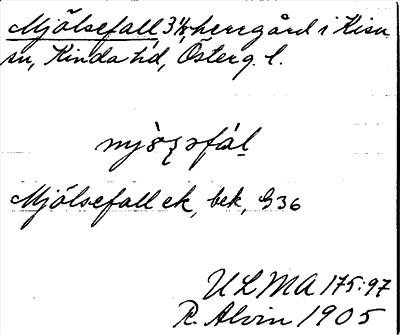 Mjölsefall 3 ½, herrgård i Kisa
sn, Kinda hd, Österg. l.
Mjölsefall ek, bek, G36
ULMA 175:97
R. Alvin 1905